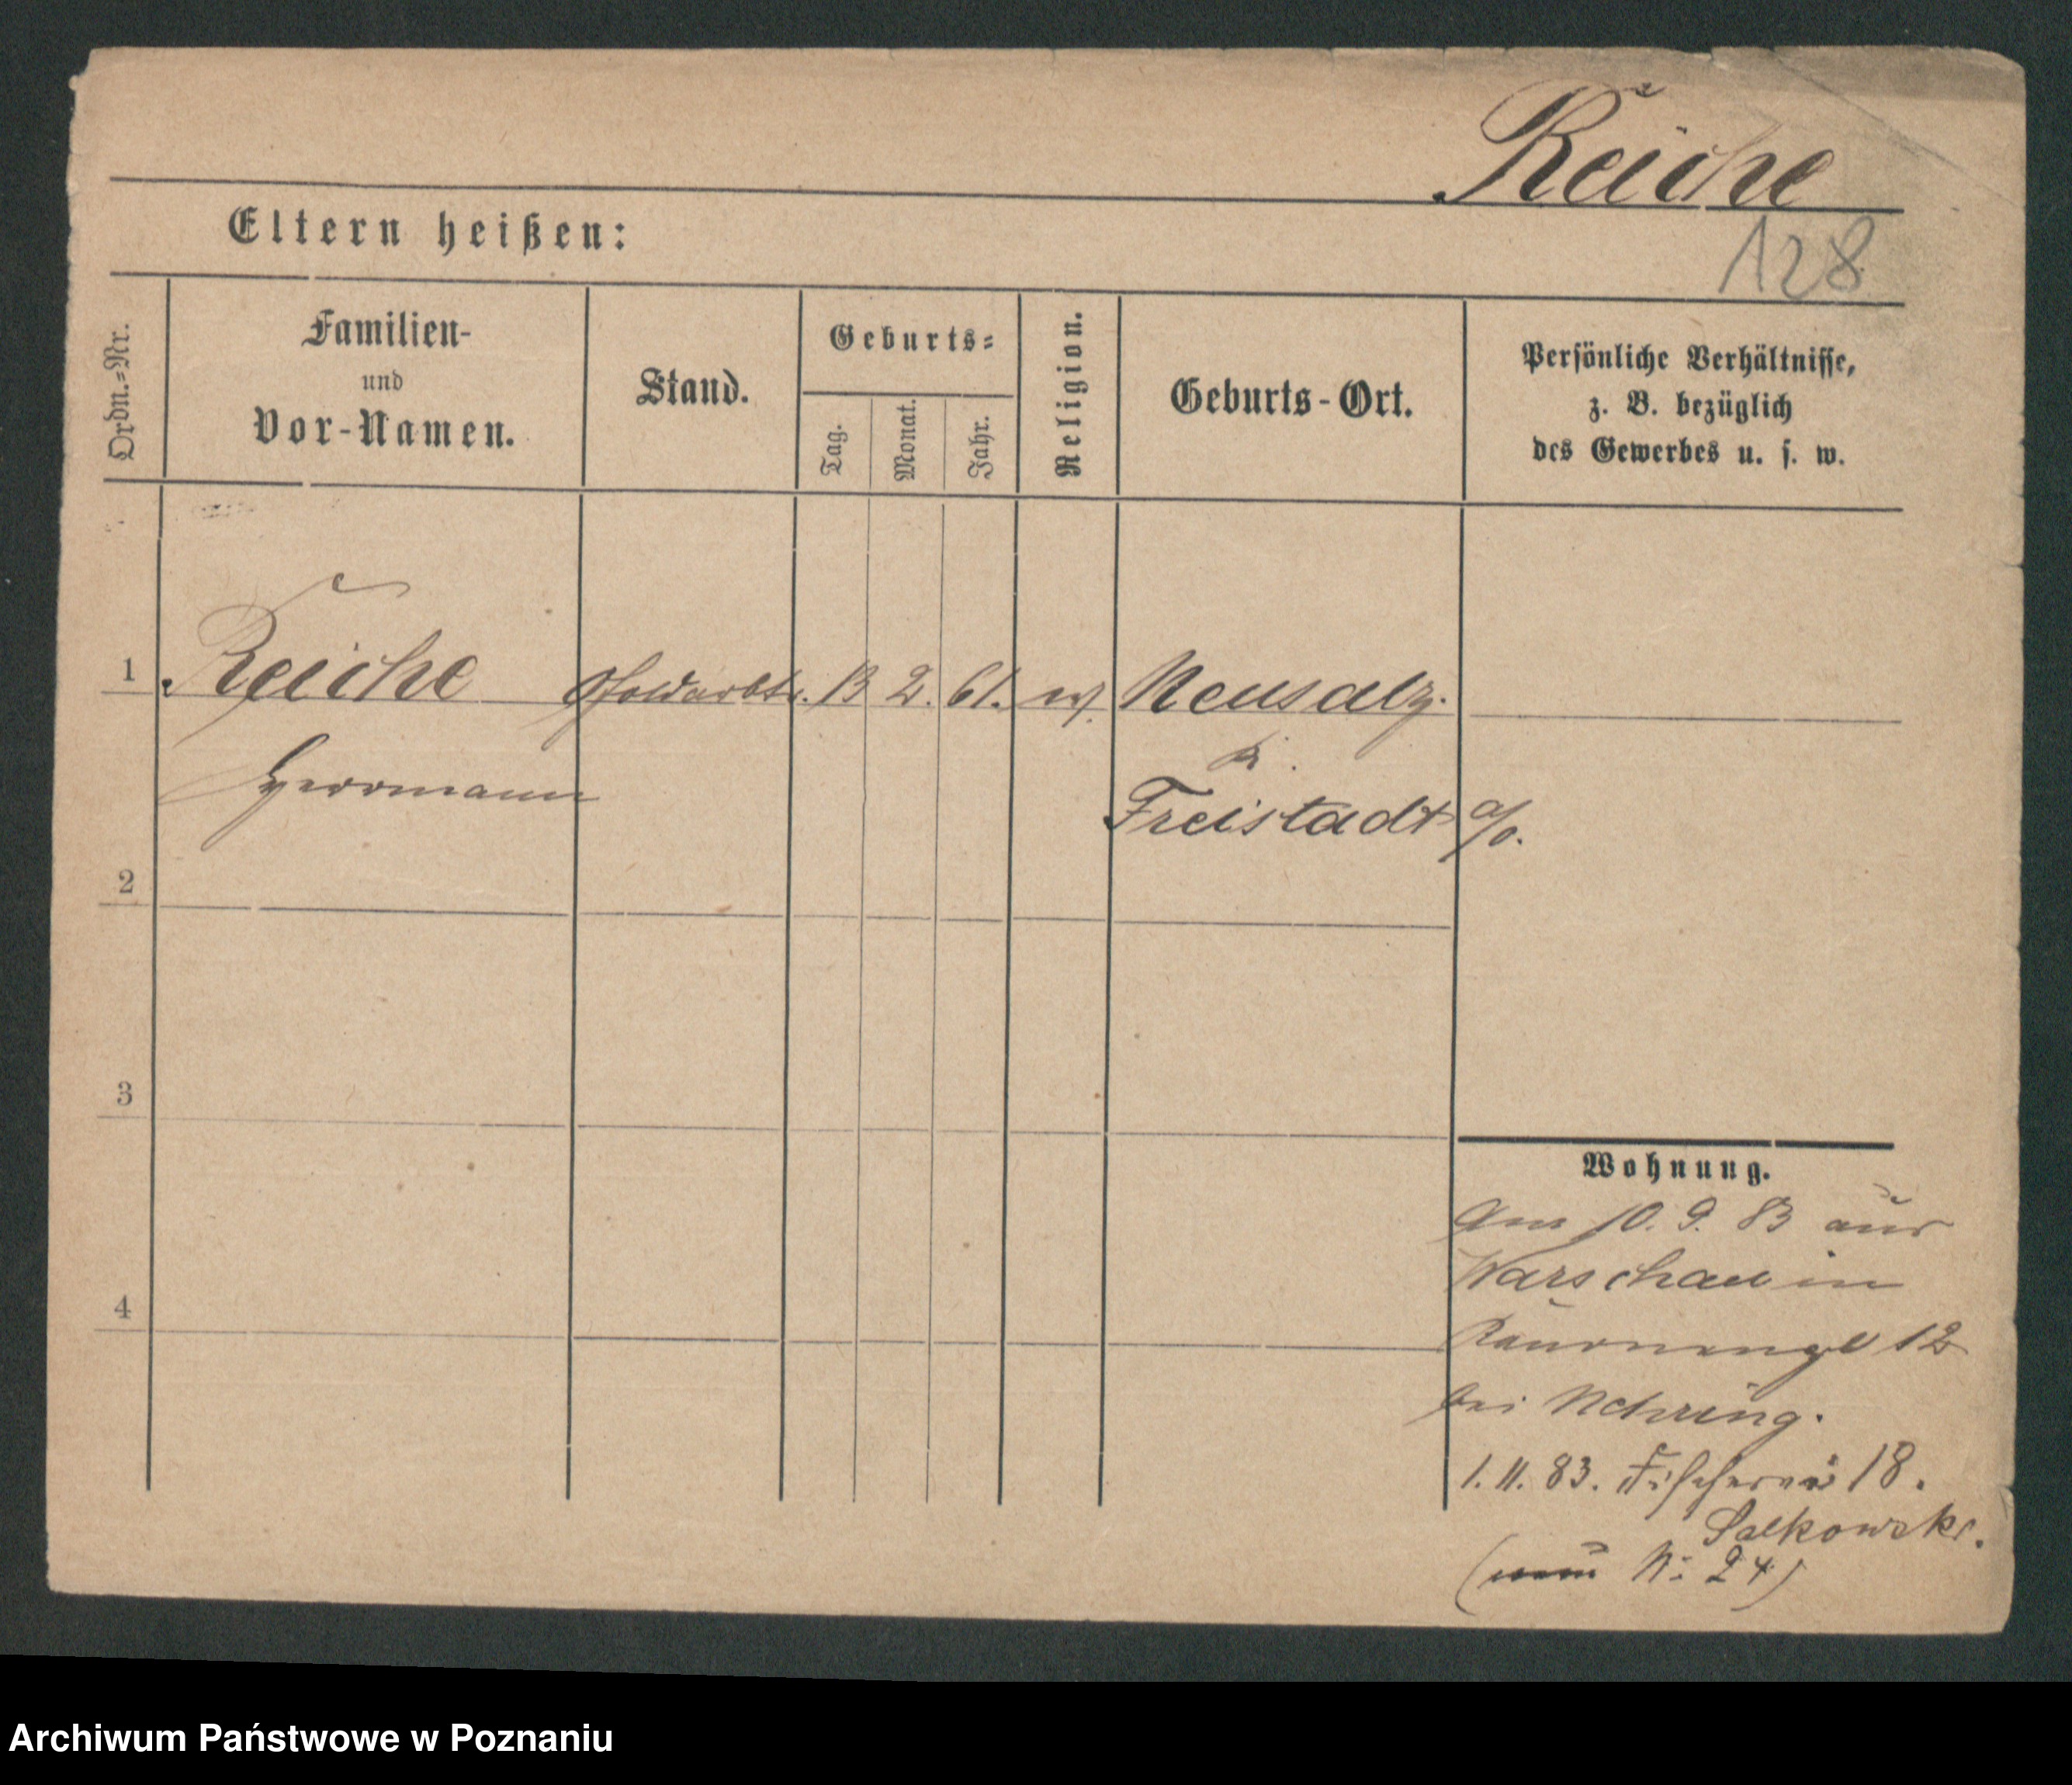 Reiche
128
Eltern heißen:
Ordn.=Nr.
Familien-
und
Vor-Namen.
Stand.
Geburts=
Tag.
Monat.
Jahr.
Religion.
Geburts-Ort.
Persönliche Verhältnisse,
z. B. bezüglich
des Gewerbes u. s. w.
1
Reiche
13
2.
61.
Neusalz.
K.
Herrmann
Freistadt a/o.
2
3
4
Wohnung.
Am 10. 9. 83 aus
Warschau in
12
bei Nehring.
1. 11. 83. Fischerei 18.
Salkowski.
( N: 24)
Archiwum Państwowe w Poznaniu